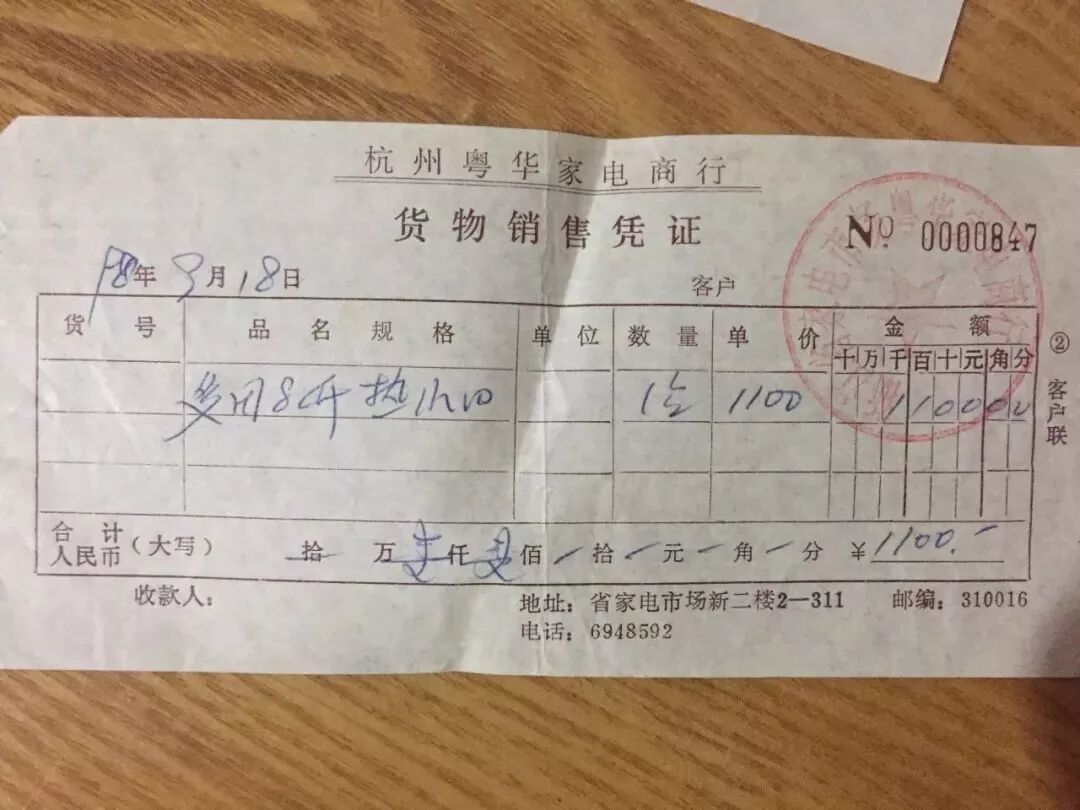 杭州粤华家电商行
货物销售凭证
Nº 0000847
98年3月18日
客户
货号 品名规格 单位 数量 单价 金额
十万千百十元角分
热 1台 1100 110000
合计人民币（大写） 拾万壹仟壹佰-拾-元-角-分 ¥1100.-
收款人：
地址：省家电市场新二楼2—311 邮编：310016
电话：6948592
②客户联